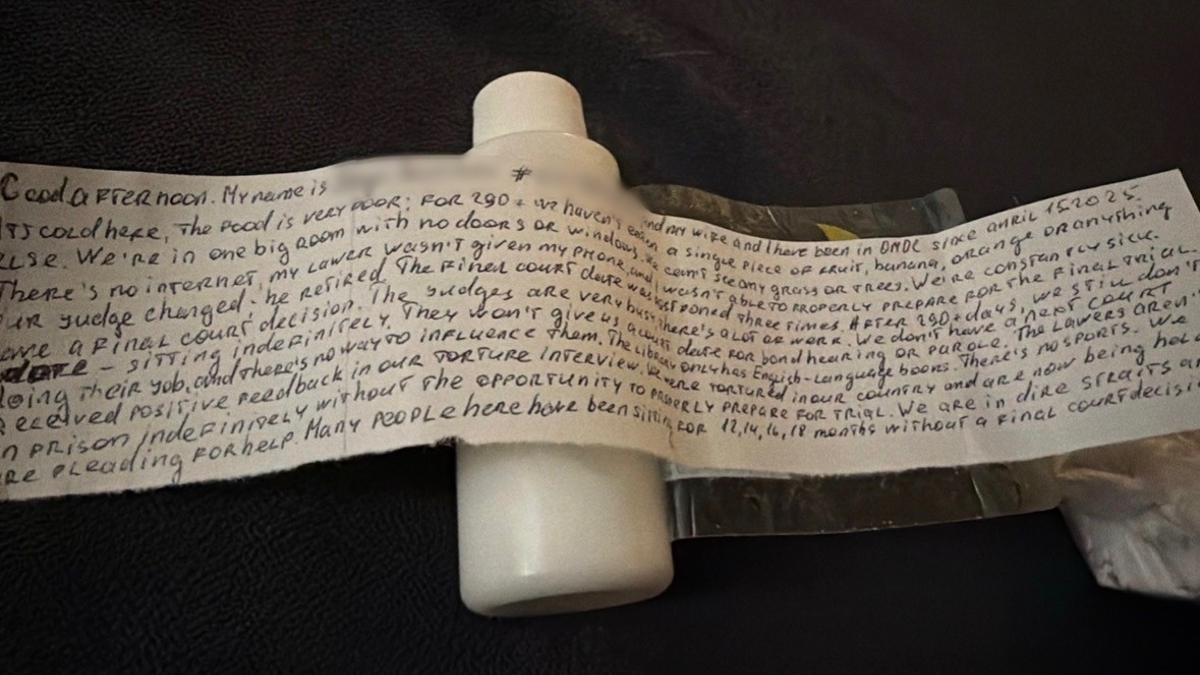 Good afternoon. My name is # and my wife and I have been in OMDC since anril 15.2025.
ITS cold here, The food is very poor: For 290+ we haven's eaten a single piece of fruit, banana, orange or anything
else. We're in one big room with no doors or windows. We can't see any grass or trees. We're constantly sick.
There's no internet, my Lawer wasn't given my phone, and I wasn't able to properly prepare for the final trial.
ur judge changed; he retired. The final court date was postponed three times. After 290+days, we still don't
ave a final court decision. The judges are very busy, there's a lot of work. We don't have a next court
date – sitting indefinitely. They won't give us a court date for bond hearing or parole. The Lawers aren't
doing their job, and there's no way to influence them. The Library only has English-Language books. There's no sports. We
received positive feedback in our torture interview. We were tortured in our country and are now being held
n prison indefinitely without the opportunity to properly prepare for trial. We are in dire straits an
re pleading for help. Many people here have been sitting for 12,14,16,18 months without a final court decisi